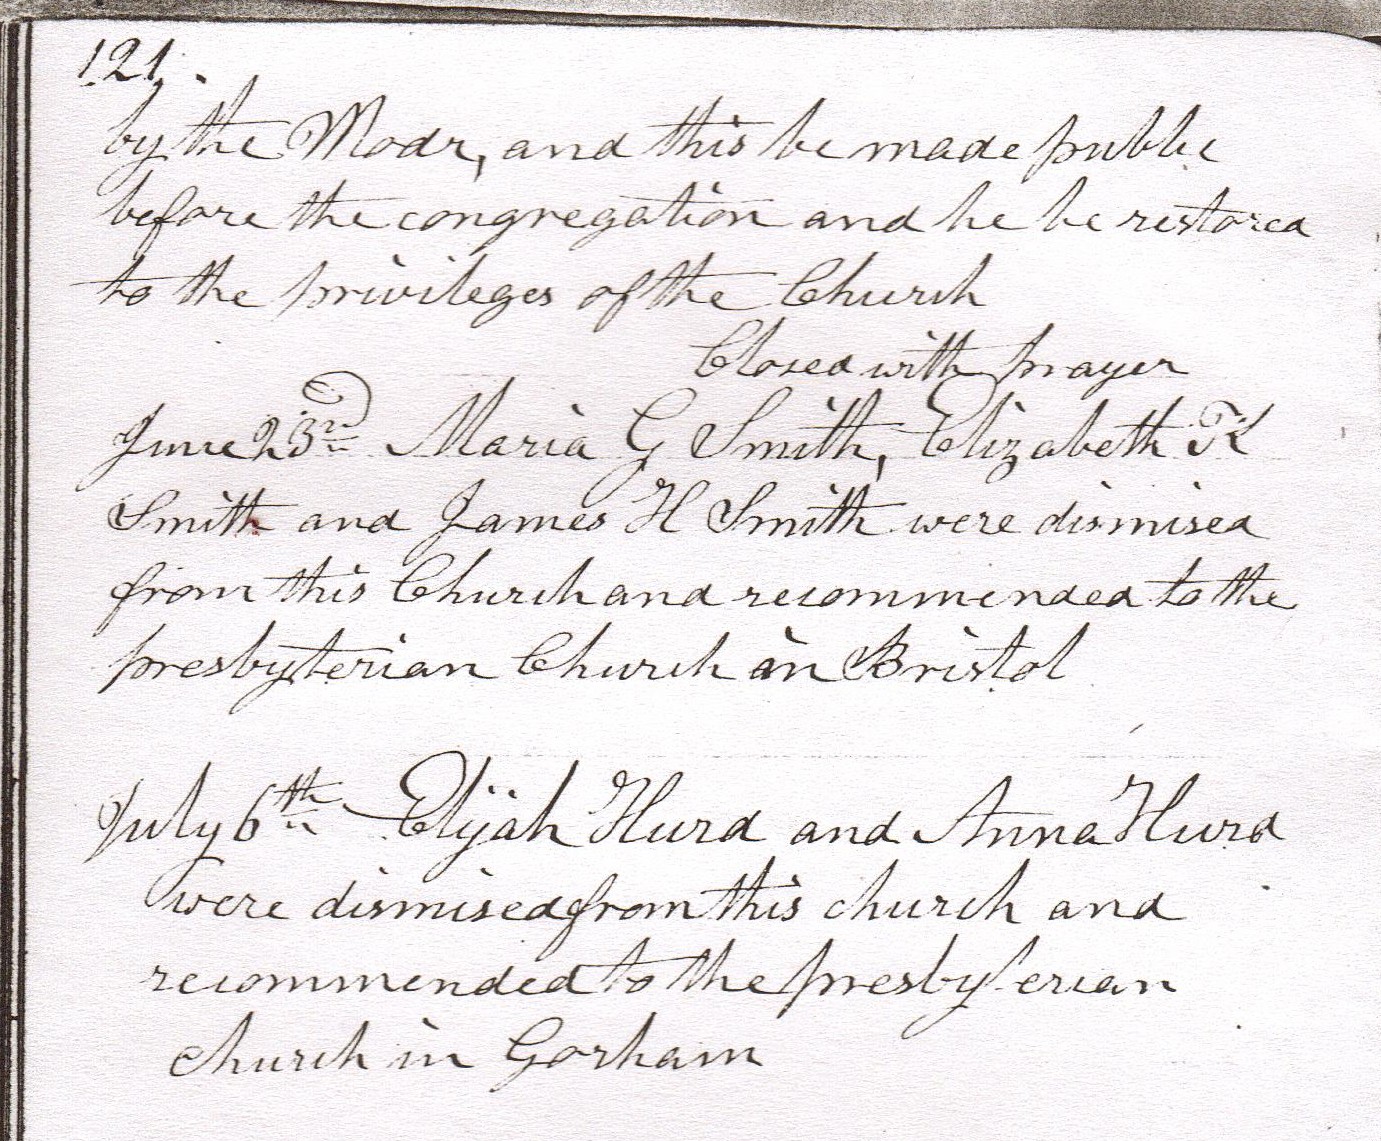 121.
by the Modr, and this be made public
before the congregation and he be restored
to the privileges of the Church
Closed with prayer
June 23rd Maria G Smith, Elizabeth K
Smith and James H Smith were dismised
from this Church and recommended to the
presbyterian Church in Bristol
July 6th Elijah Hurd and Anna Hurd
were dismised from this church and
recommended to the presbyterian
church in Gorham